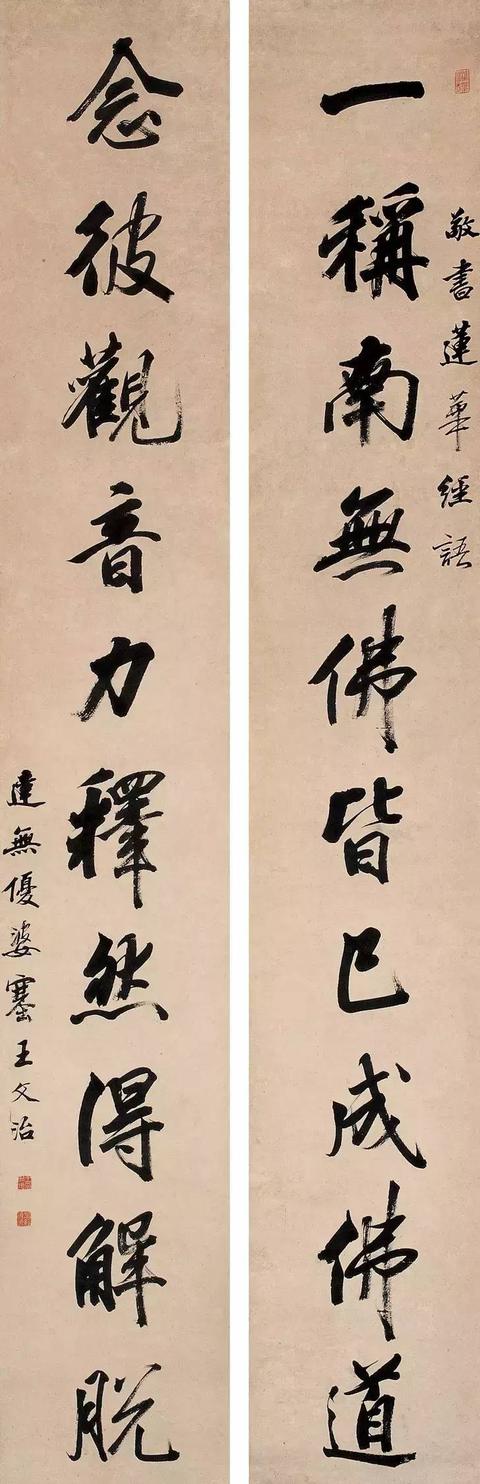 敬書蓮華經語
一稱南無佛皆已成佛道
念彼觀音力釋然得解脫
達無優婆塞王文治